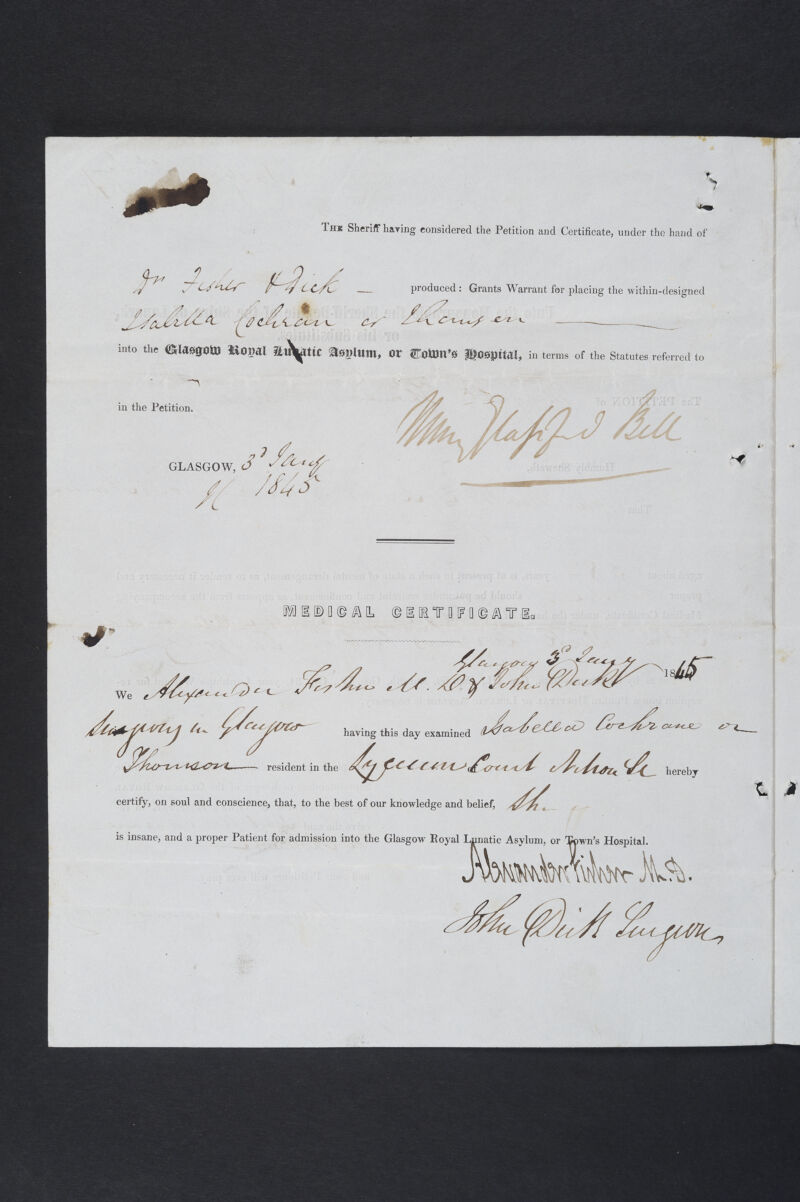 THE Sheriff having considered the Petition and Certificate, under the hand of
Drs Fisher & Dick — produced: Grants Warrant for placing the within-designed
Isabella Cochran or Thomson —
into the Glasgow Royal Lunatic Asylum, or Town's Hospital, in terms of the Statutes referred to
in the Petition.
Glassford Bell
GLASGOW, 3d Jany
1845
MEDICAL CERTIFICATE.
Glasgow 3d Jany 1845
We Alexander Fisher M.D. & John Dick
Surgeons in Glasgow having this day examined Isabella Cochrane or
Thomson resident in the Lyceum Court Nelson St hereby
certify, on soul and conscience, that, to the best of our knowledge and belief, She
is insane, and a proper Patient for admission into the Glasgow Royal Lunatic Asylum, or Town's Hospital.
Alexander Fisher M.D.
John Dick Surgeon